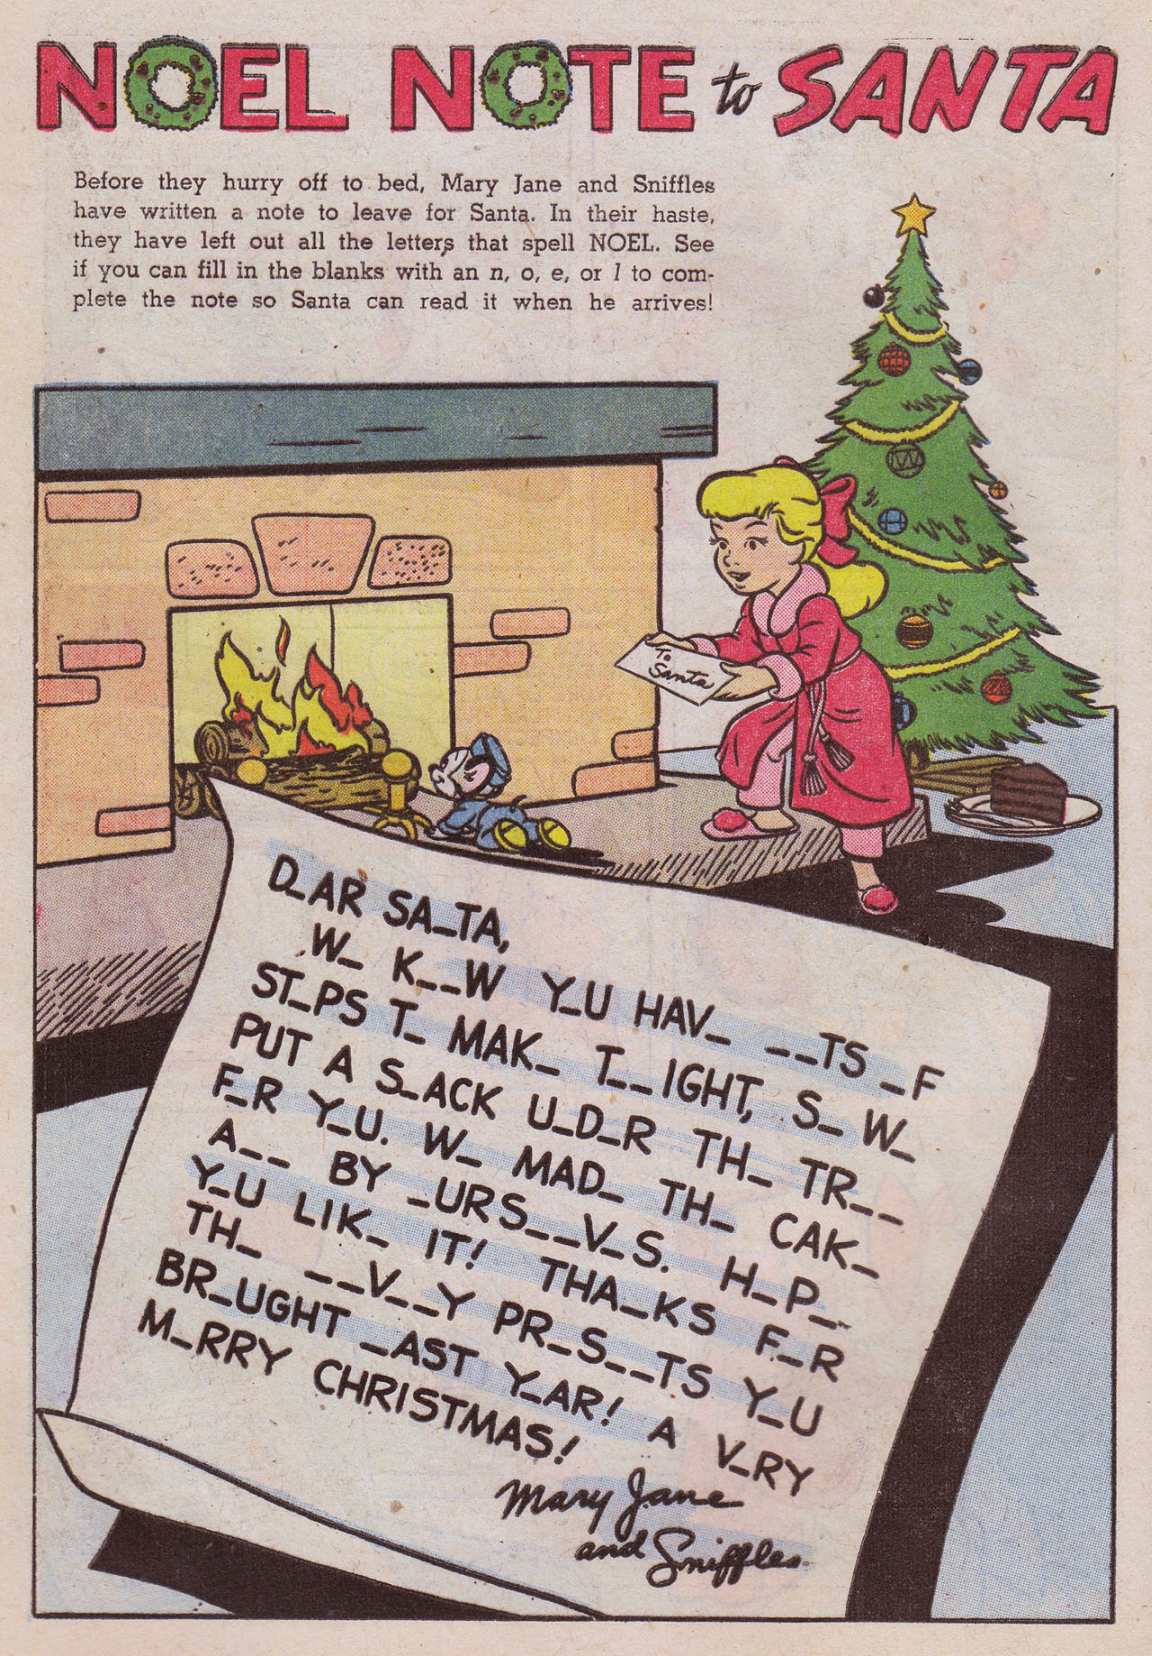 NOEL NOTE to SANTA
Before they hurry off to bed, Mary Jane and Sniffles
have written a note to leave for Santa. In their haste,
they have left out all the letters that spell NOEL. See
if you can fill in the blanks with an n, o, e, or l to com-
plete the note so Santa can read it when he arrives!
To
Santa
D_AR SA_TA,
W_ K__W Y_U HAV_ __TS _F
ST_PS T_ MAK_ T__IGHT, S_ W_
PUT A S_ACK U_D_R TH_ TR__
F_R Y_U. W_ MAD_ TH_ CAK_
A__ BY _URS__V_S. H_P_
Y_U LIK_ IT! THA_KS F_R
TH_ __V__Y PR_S__TS Y_U
BR_UGHT _AST Y_AR! A V_RY
M_RRY CHRISTMAS!
Mary Jane
and Sniffles